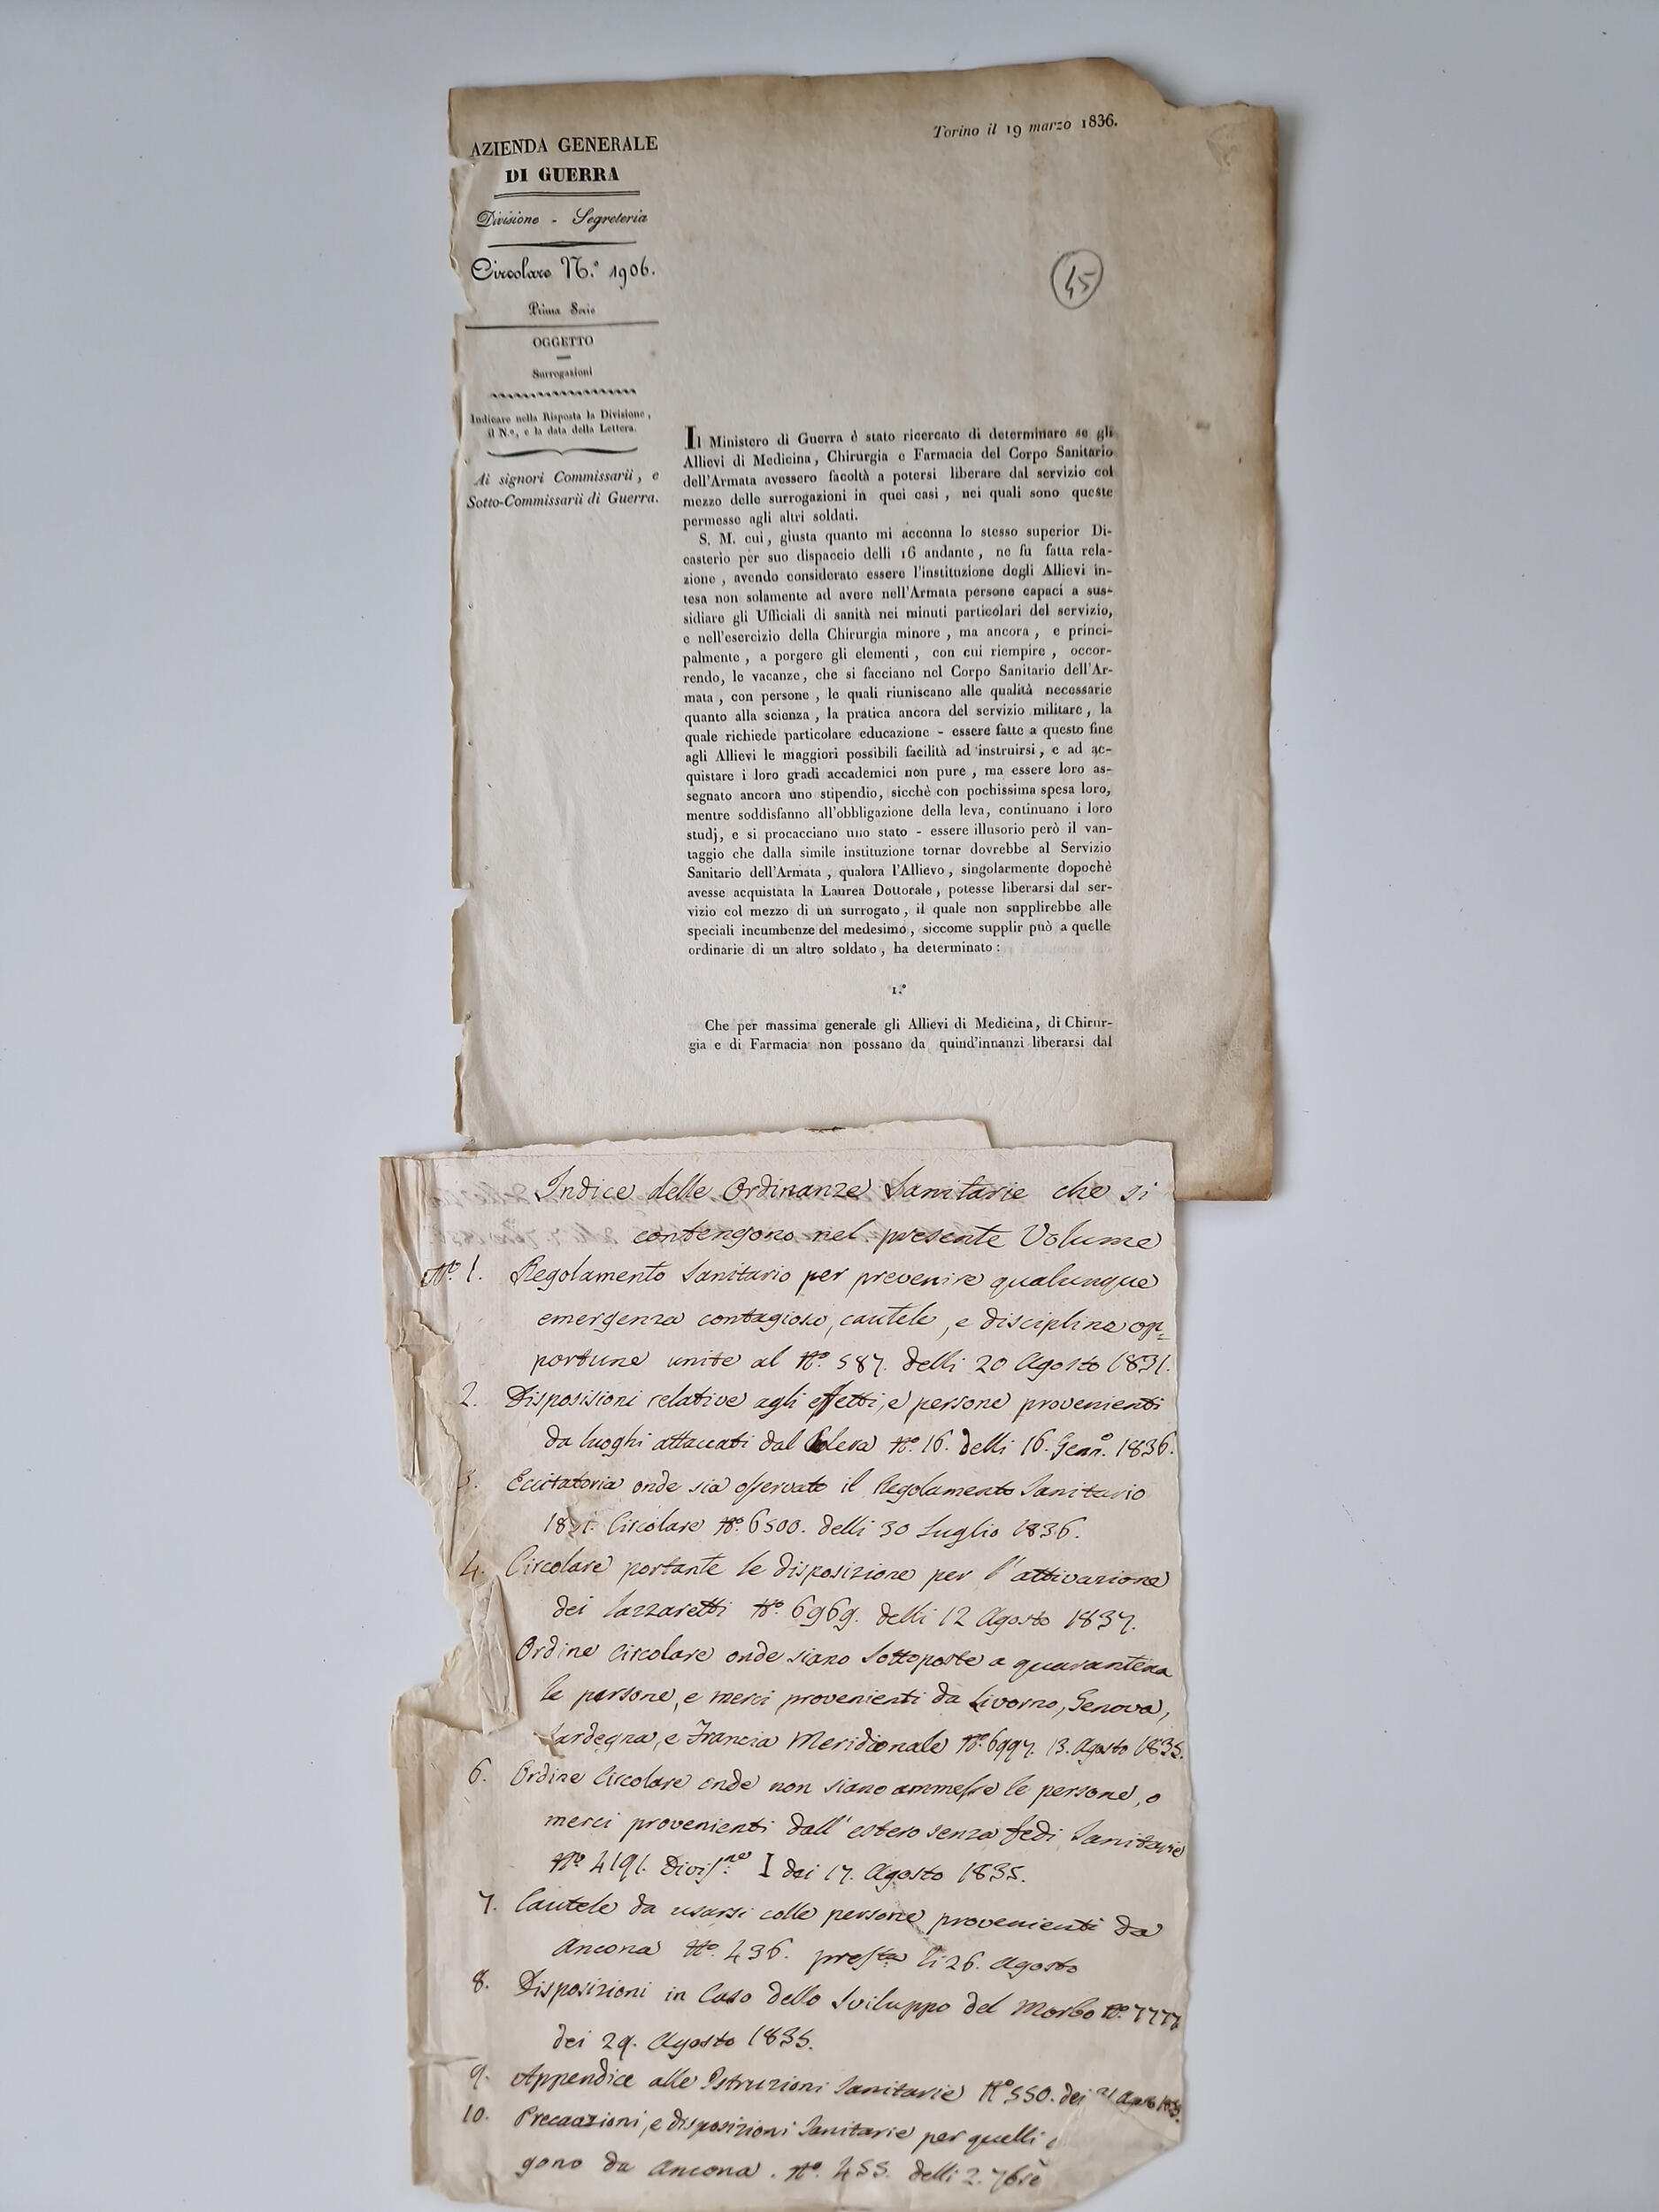 AZIENDA GENERALE
DI GUERRA
Divisione - Segreteria
Circolare N.º 1906.
Prima Serie
OGGETTO
Surrogazioni
Indicare nella Risposta la Divisione,
il N.º, e la data della Lettera.
Ai signori Commissarii, e
Sotto-Commissarii di Guerra.
Torino il 19 marzo 1836.
45
Il Ministero di Guerra è stato ricercato di determinare se gli
Allievi di Medicina, Chirurgia e Farmacia del Corpo Sanitario
dell'Armata avessero facoltà a potersi liberare dal servizio col
mezzo delle surrogazioni in quei casi, nei quali sono queste
permesse agli altri soldati.
S. M. cui, giusta quanto mi accenna lo stesso superior Di-
casterio per suo dispaccio delli 16 andante, ne fu fatta rela-
zione, avendo considerato essere l'instituzione degli Allievi in-
tesa non solamente ad avere nell'Armata persone capaci a sus-
sidiare gli Ufficiali di sanità nei minuti particolari del servizio,
e nell'esercizio della Chirurgia minore, ma ancora, e princi-
palmente, a porgere gli elementi, con cui riempire, occor-
rendo, le vacanze, che si facciano nel Corpo Sanitario dell'Ar-
mata, con persone, le quali riuniscano alle qualità necessarie
quanto alla scienza, la pratica ancora del servizio militare, la
quale richiede particolare educazione - essere fatte a questo fine
agli Allievi le maggiori possibili facilità ad instruirsi, e ad ac-
quistare i loro gradi accademici non pure, ma essere loro as-
segnato ancora uno stipendio, sicchè con pochissima spesa loro,
mentre soddisfanno all'obbligazione della leva, continuano i loro
studj, e si procacciano uno stato - essere illusorio però il van-
taggio che dalla simile instituzione tornar dovrebbe al Servizio
Sanitario dell'Armata, qualora l'Allievo, singolarmente dopochè
avesse acquistata la Laurea Dottorale, potesse liberarsi dal ser-
vizio col mezzo di un surrogato, il quale non supplirebbe alle
speciali incumbenze del medesimo, siccome supplir può a quelle
ordinarie di un altro soldato, ha determinato:
1.º
Che per massima generale gli Allievi di Medicina, di Chirur-
gia e di Farmacia non possano da quind'innanzi liberarsi dal
Indice delle Ordinanze Sanitarie che si
contengono nel presente Volume
Nº. 1. Regolamento Sanitario per prevenire qualunque
emergenza contagiosa, cautele, e disciplina op-
portune unite al Nº. 587. delli 20 Agosto 1831.
2. Disposisioni relative agli effetti, e persone provenienti
da luoghi attaccati dal Colera Nº. 16. delli 16. Genn.º 1836.
3. Eccitatoria onde sia osservato il Regolamento Sanitario
Circolare Nº. 6500. delli 30 Luglio 1836.
4. Circolare portante le disposizione per l'attivazione
dei Lazzaretti Nº. 6969. delli 12 Agosto 1837.
Ordine Circolare onde siano Sottoposte a quarantena
le persone, e merci provenienti da Livorno, Genova,
Sardegna, e Francia Meridionale Nº. 6997. 13. Agosto 1835.
6. Ordine Circolare onde non siano ammesse le persone, o
merci provenienti dall'estero senza fedi Sanitarie
Nº. 4191. Divis.ne I dei 17. Agosto 1835.
7. Cautele da usarsi colle persone provenienti da
Ancona Nº. 436. li 26. Agosto
8. Disposizioni in Caso dello Sviluppo del Morbo Nº. 7777
dei 29. Agosto 1835.
9. Appendice alle Istruzioni Sanitarie Nº 550. dei
10. Precauzioni, e disposizioni Sanitarie per quelli
gono da Ancona. Nº. 455. delli 2. 7bre